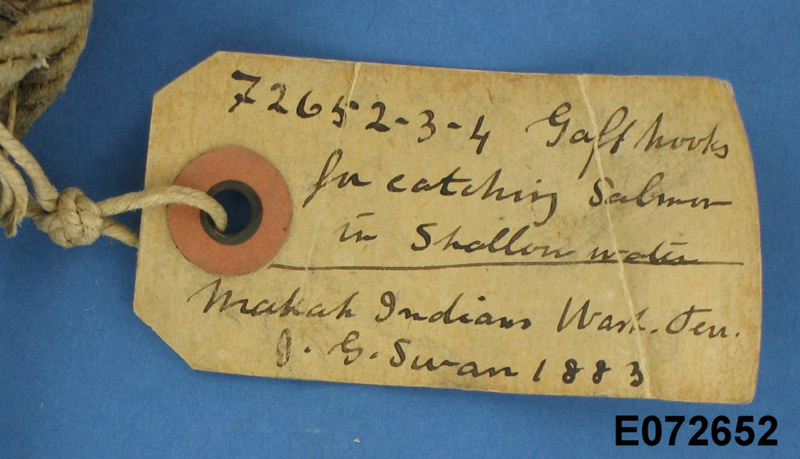 72652-3-4 Gaff hooks
for catching Salmon
in Shallow water
Makah Indians Wash. Terr.
J. G. Swan 1883
E072652